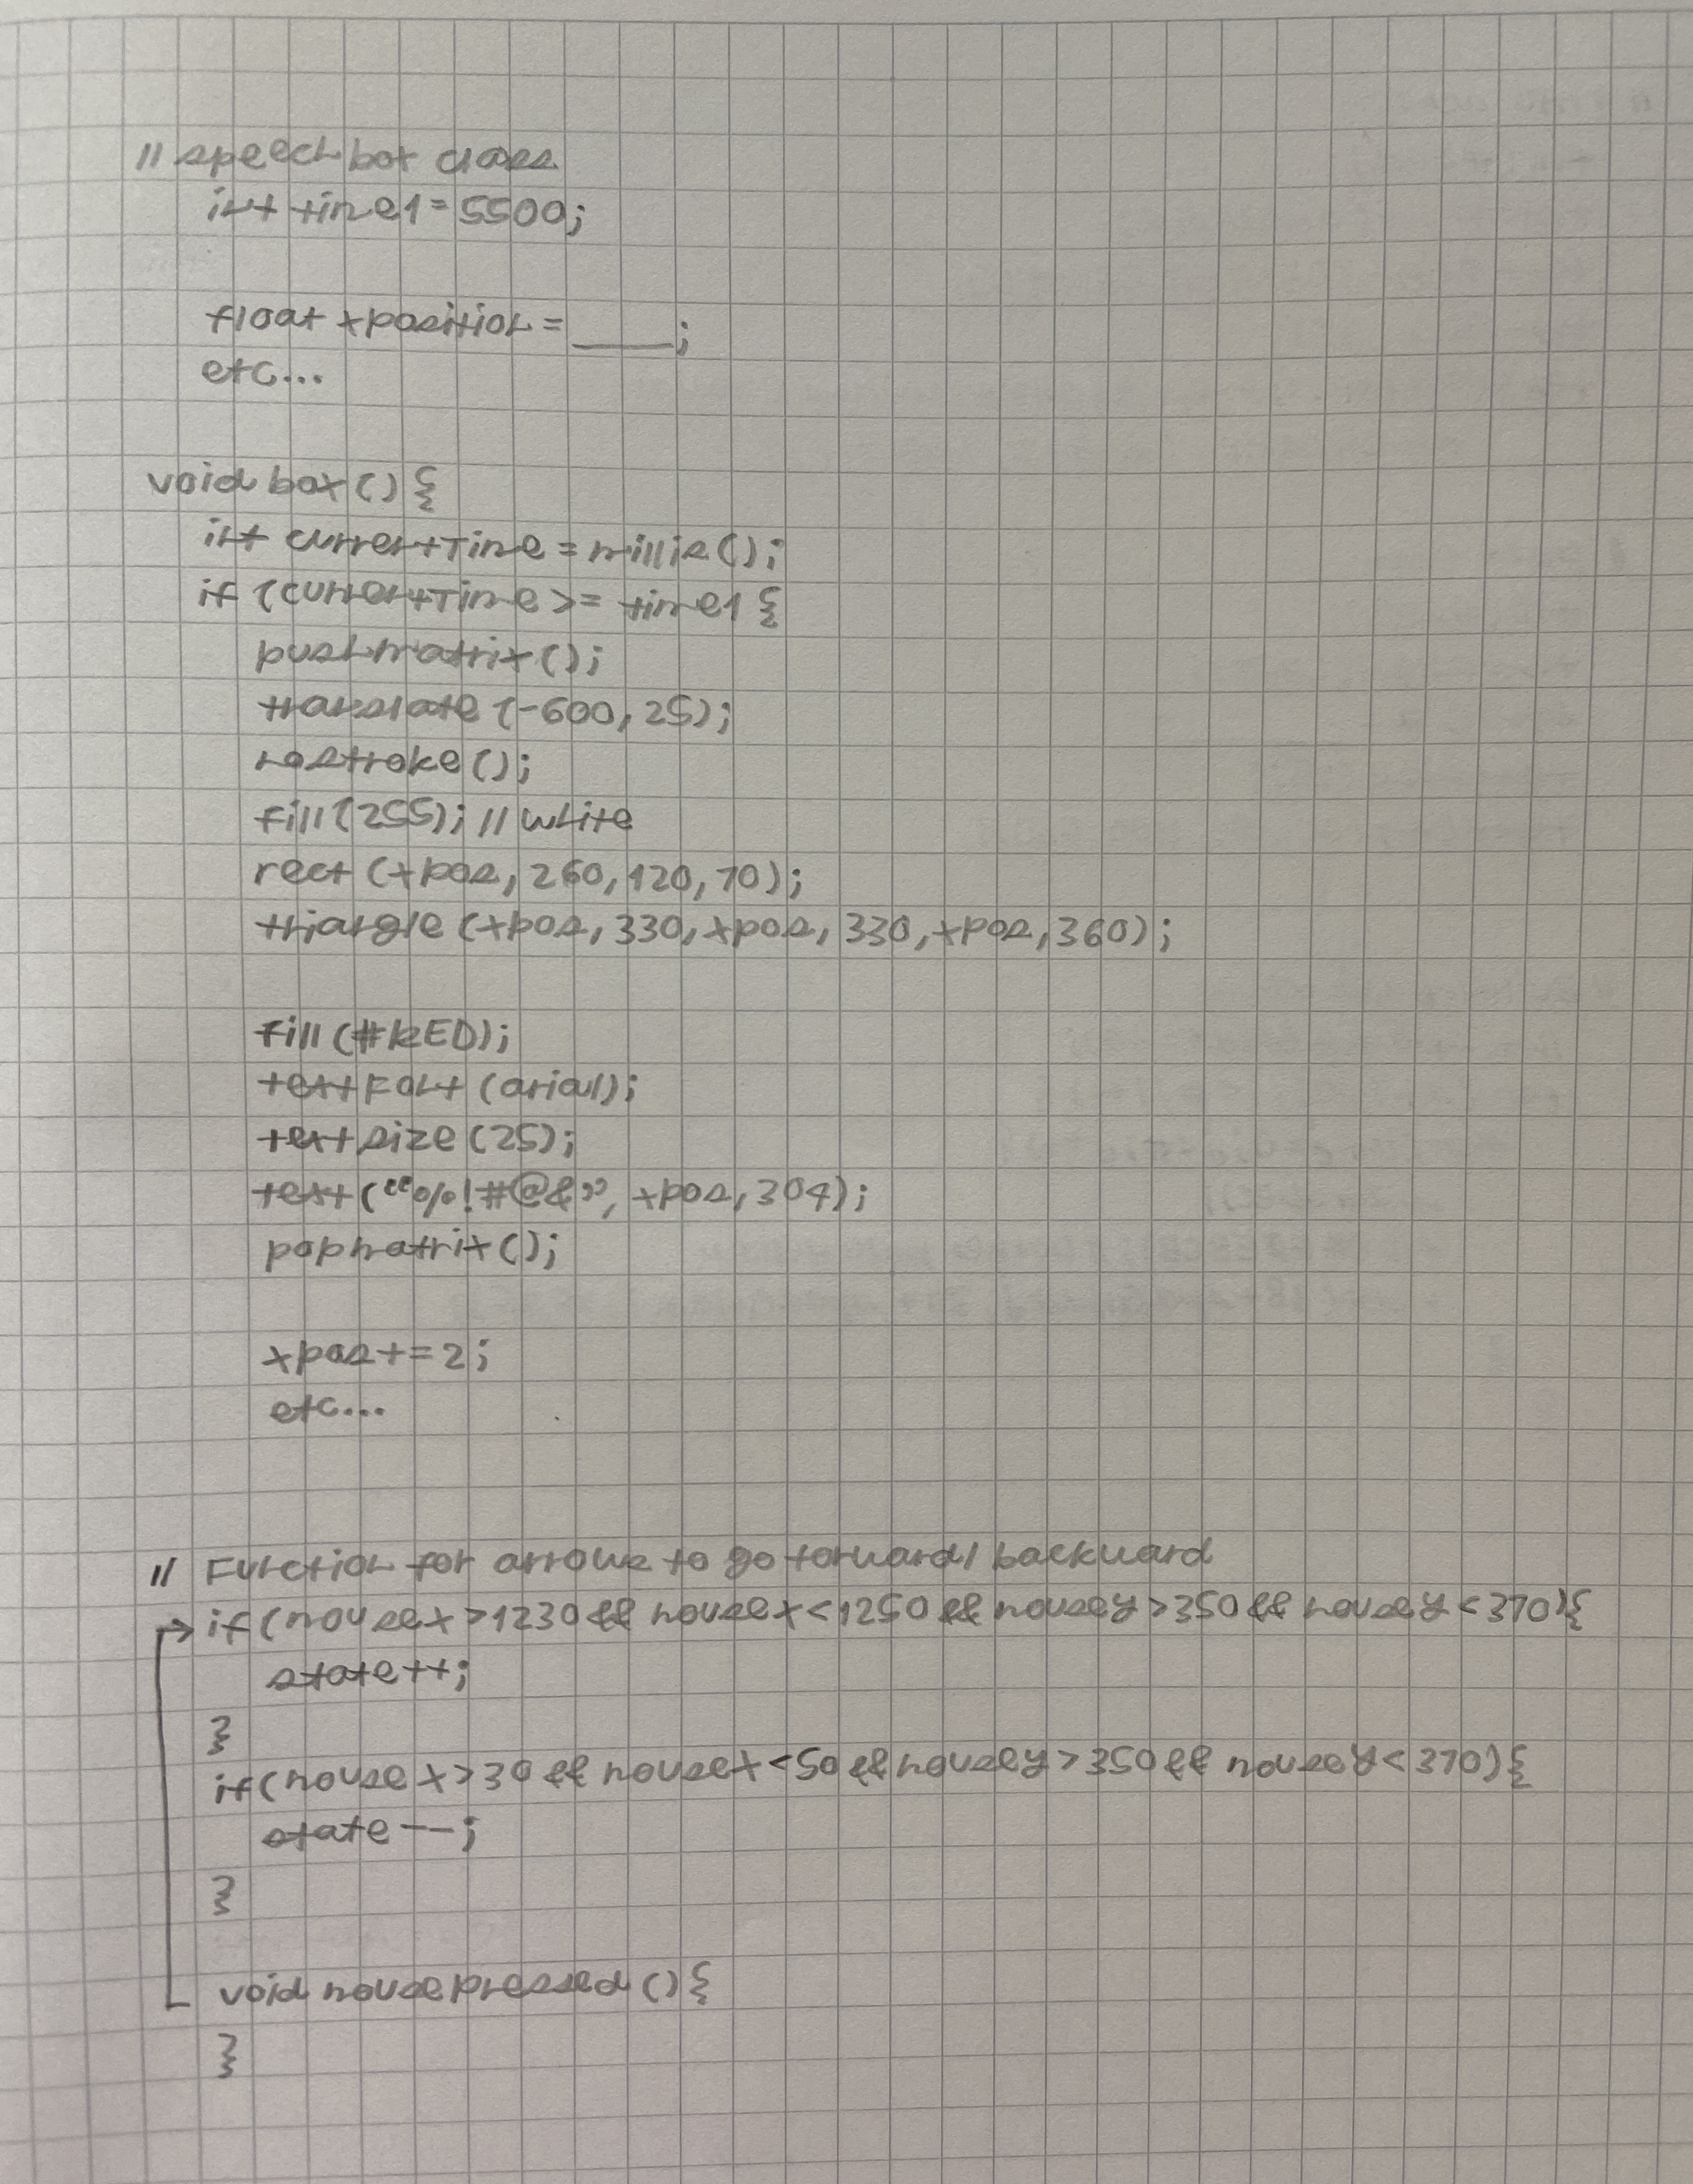 // speech box class
int time1 = 5500;
float xposition = ____;
etc...
void box () {
int currentTime = millis();
if (currentTime >= time1 {
pushmatrix();
translate (-600, 25);
nostroke();
fill (255); // white
rect (xpos, 260, 120, 70);
triangle (xpos, 330, xpos, 330, xpos, 360);
fill (#RED);
textFont (arial);
textsize (25);
text (“%!#@&”, xpos, 304);
popmatrix();
xpos += 2;
etc...
// Function for arrows to go forward/backward
→ if (mousex > 1230 && mousex < 1250 && mousey > 350 && mousey < 370) {
state++;
}
if (mousex > 30 && mousex < 50 && mousey > 350 && mousey < 370) {
state --;
}
void mousepressed () {
}